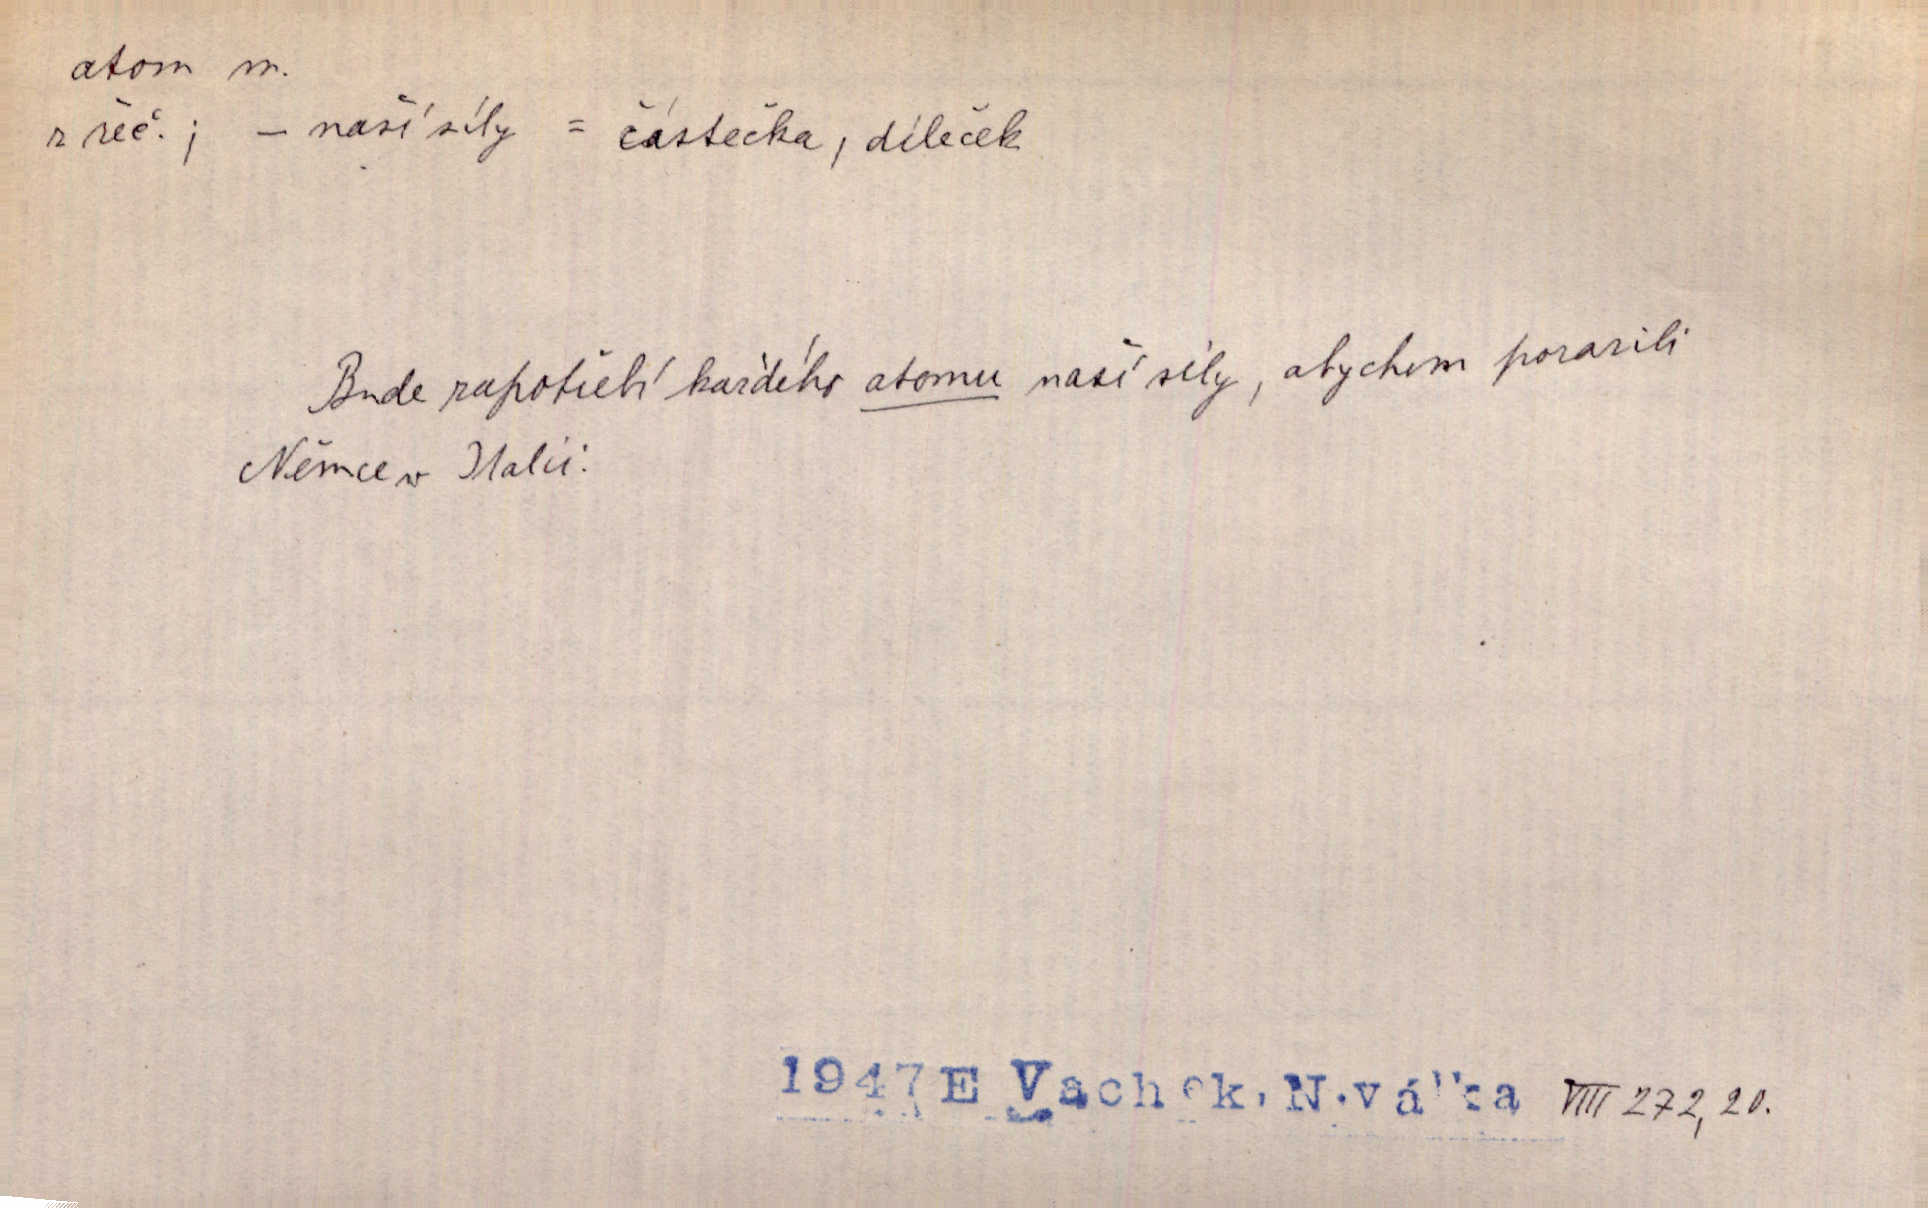 atom m.
z řeč. ; – naší síly = částečka, díleček
Bude zapotřebí každého atomu naší síly, abychom porazili
Němce v Italii.
1947 E Vachek, N. válka VIII 272, 20.